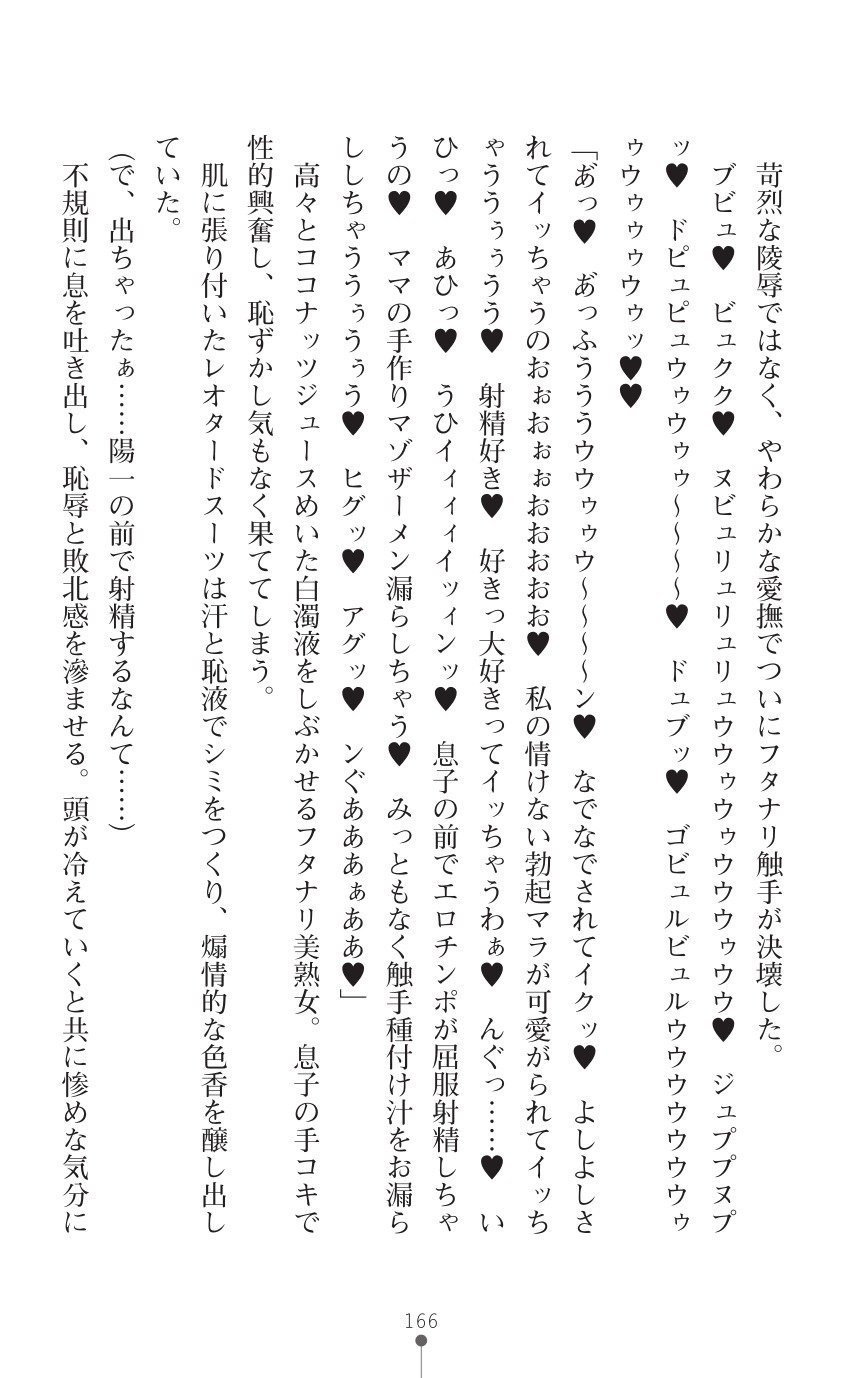 苛烈な陵辱ではなく、やわらかな愛撫でついにフタナリ触手が決壊した。
ブビュ♥　ビュクク♥　ヌビュリュリュリュウウゥウゥウウウゥウウ♥　ジュププヌプ
ッ♥　ドピュピュウゥウゥゥ～～～～♥　ドュブッ♥　ゴビュルビュルウウウウウウウゥ
ゥウゥゥゥウゥッ♥♥
「あ゛っ♥　あ゛っふうううウウゥゥウ～～～～ン♥　なでなでされてイクッ♥　よしよしさ
れてイッちゃうのおぉおぉぉおおおおお♥　私の情けない勃起マラが可愛がられてイッち
ゃううぅぅうう♥　射精好き♥　好きっ大好きってイッちゃうわぁ♥　んぐっ……♥　い
ひっ♥　あひっ♥　うひイィィィイッィンッ♥　息子の前でエロチンポが屈服射精しちゃ
うの♥　ママの手作りマゾザーメン漏らしちゃう♥　みっともなく触手種付け汁をお漏ら
ししちゃううぅうぅう♥　ヒグッ♥　アグッ♥　ンぐあああぁああ♥」
高々とココナッツジュースめいた白濁液をしぶかせるフタナリ美熟女。息子の手コキで
性的興奮し、恥ずかし気もなく果ててしまう。
肌に張り付いたレオタードスーツは汗と恥液でシミをつくり、煽情的な色香を醸し出し
ていた。
（で、出ちゃったぁ……陽一の前で射精するなんて……）
不規則に息を吐き出し、恥辱と敗北感を滲ませる。頭が冷えていくと共に惨めな気分に
166